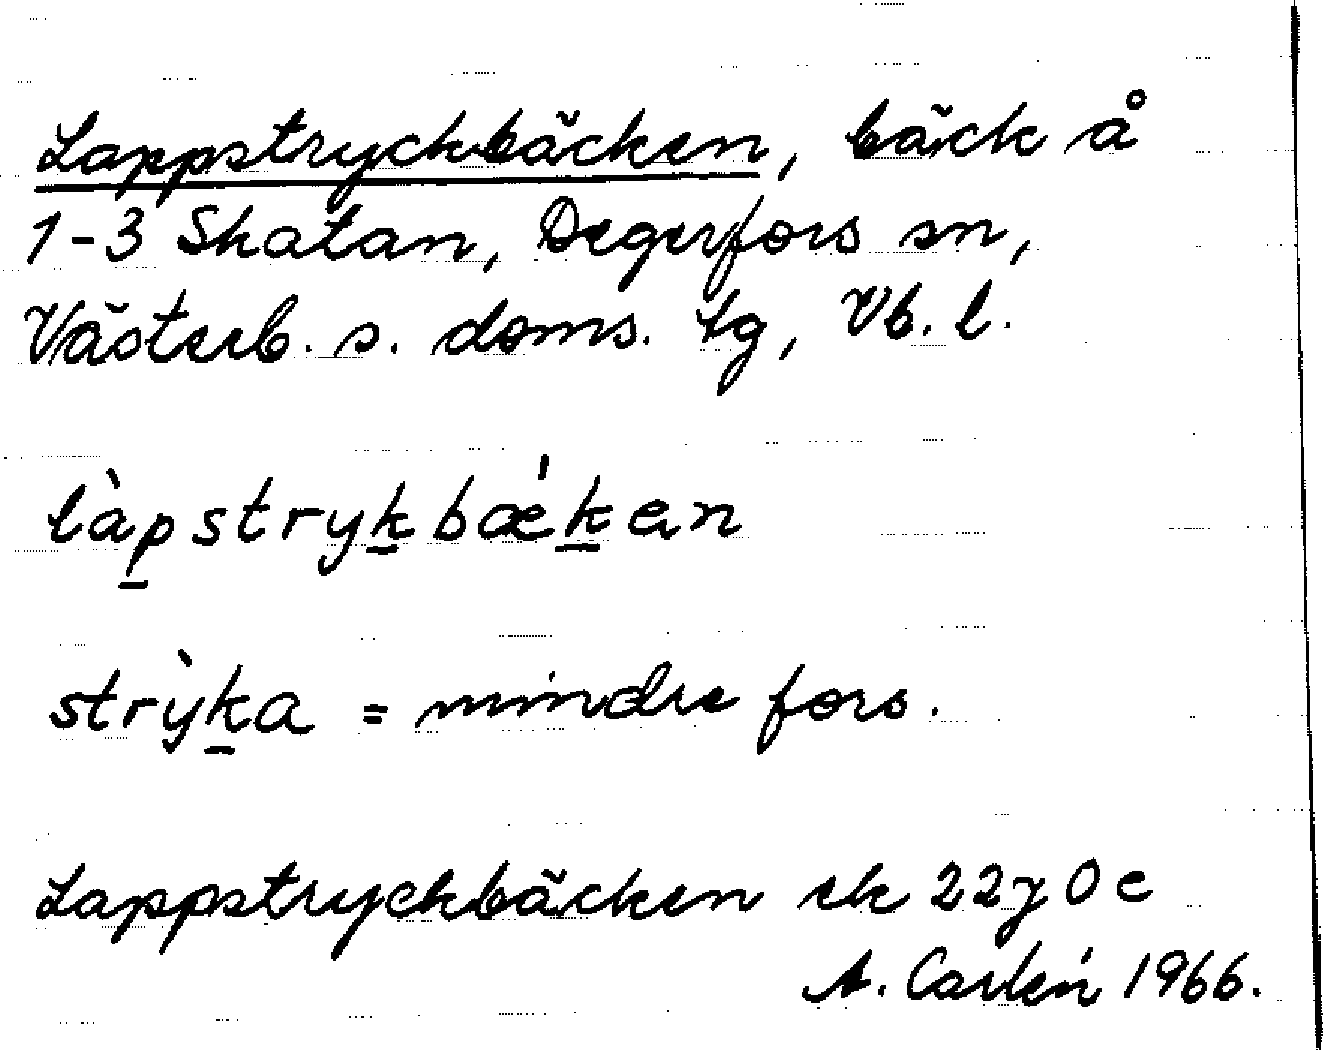 Lappstryckbäcken, bäck å
1-3 Skatan, Degerfors sn,
Västerb. s. doms. tg, Vb. l.
làpstrykbǽkan
strỳka = mindre fors.
Lappstryckbäcken ek 22J0c
A. Carlén 1966.